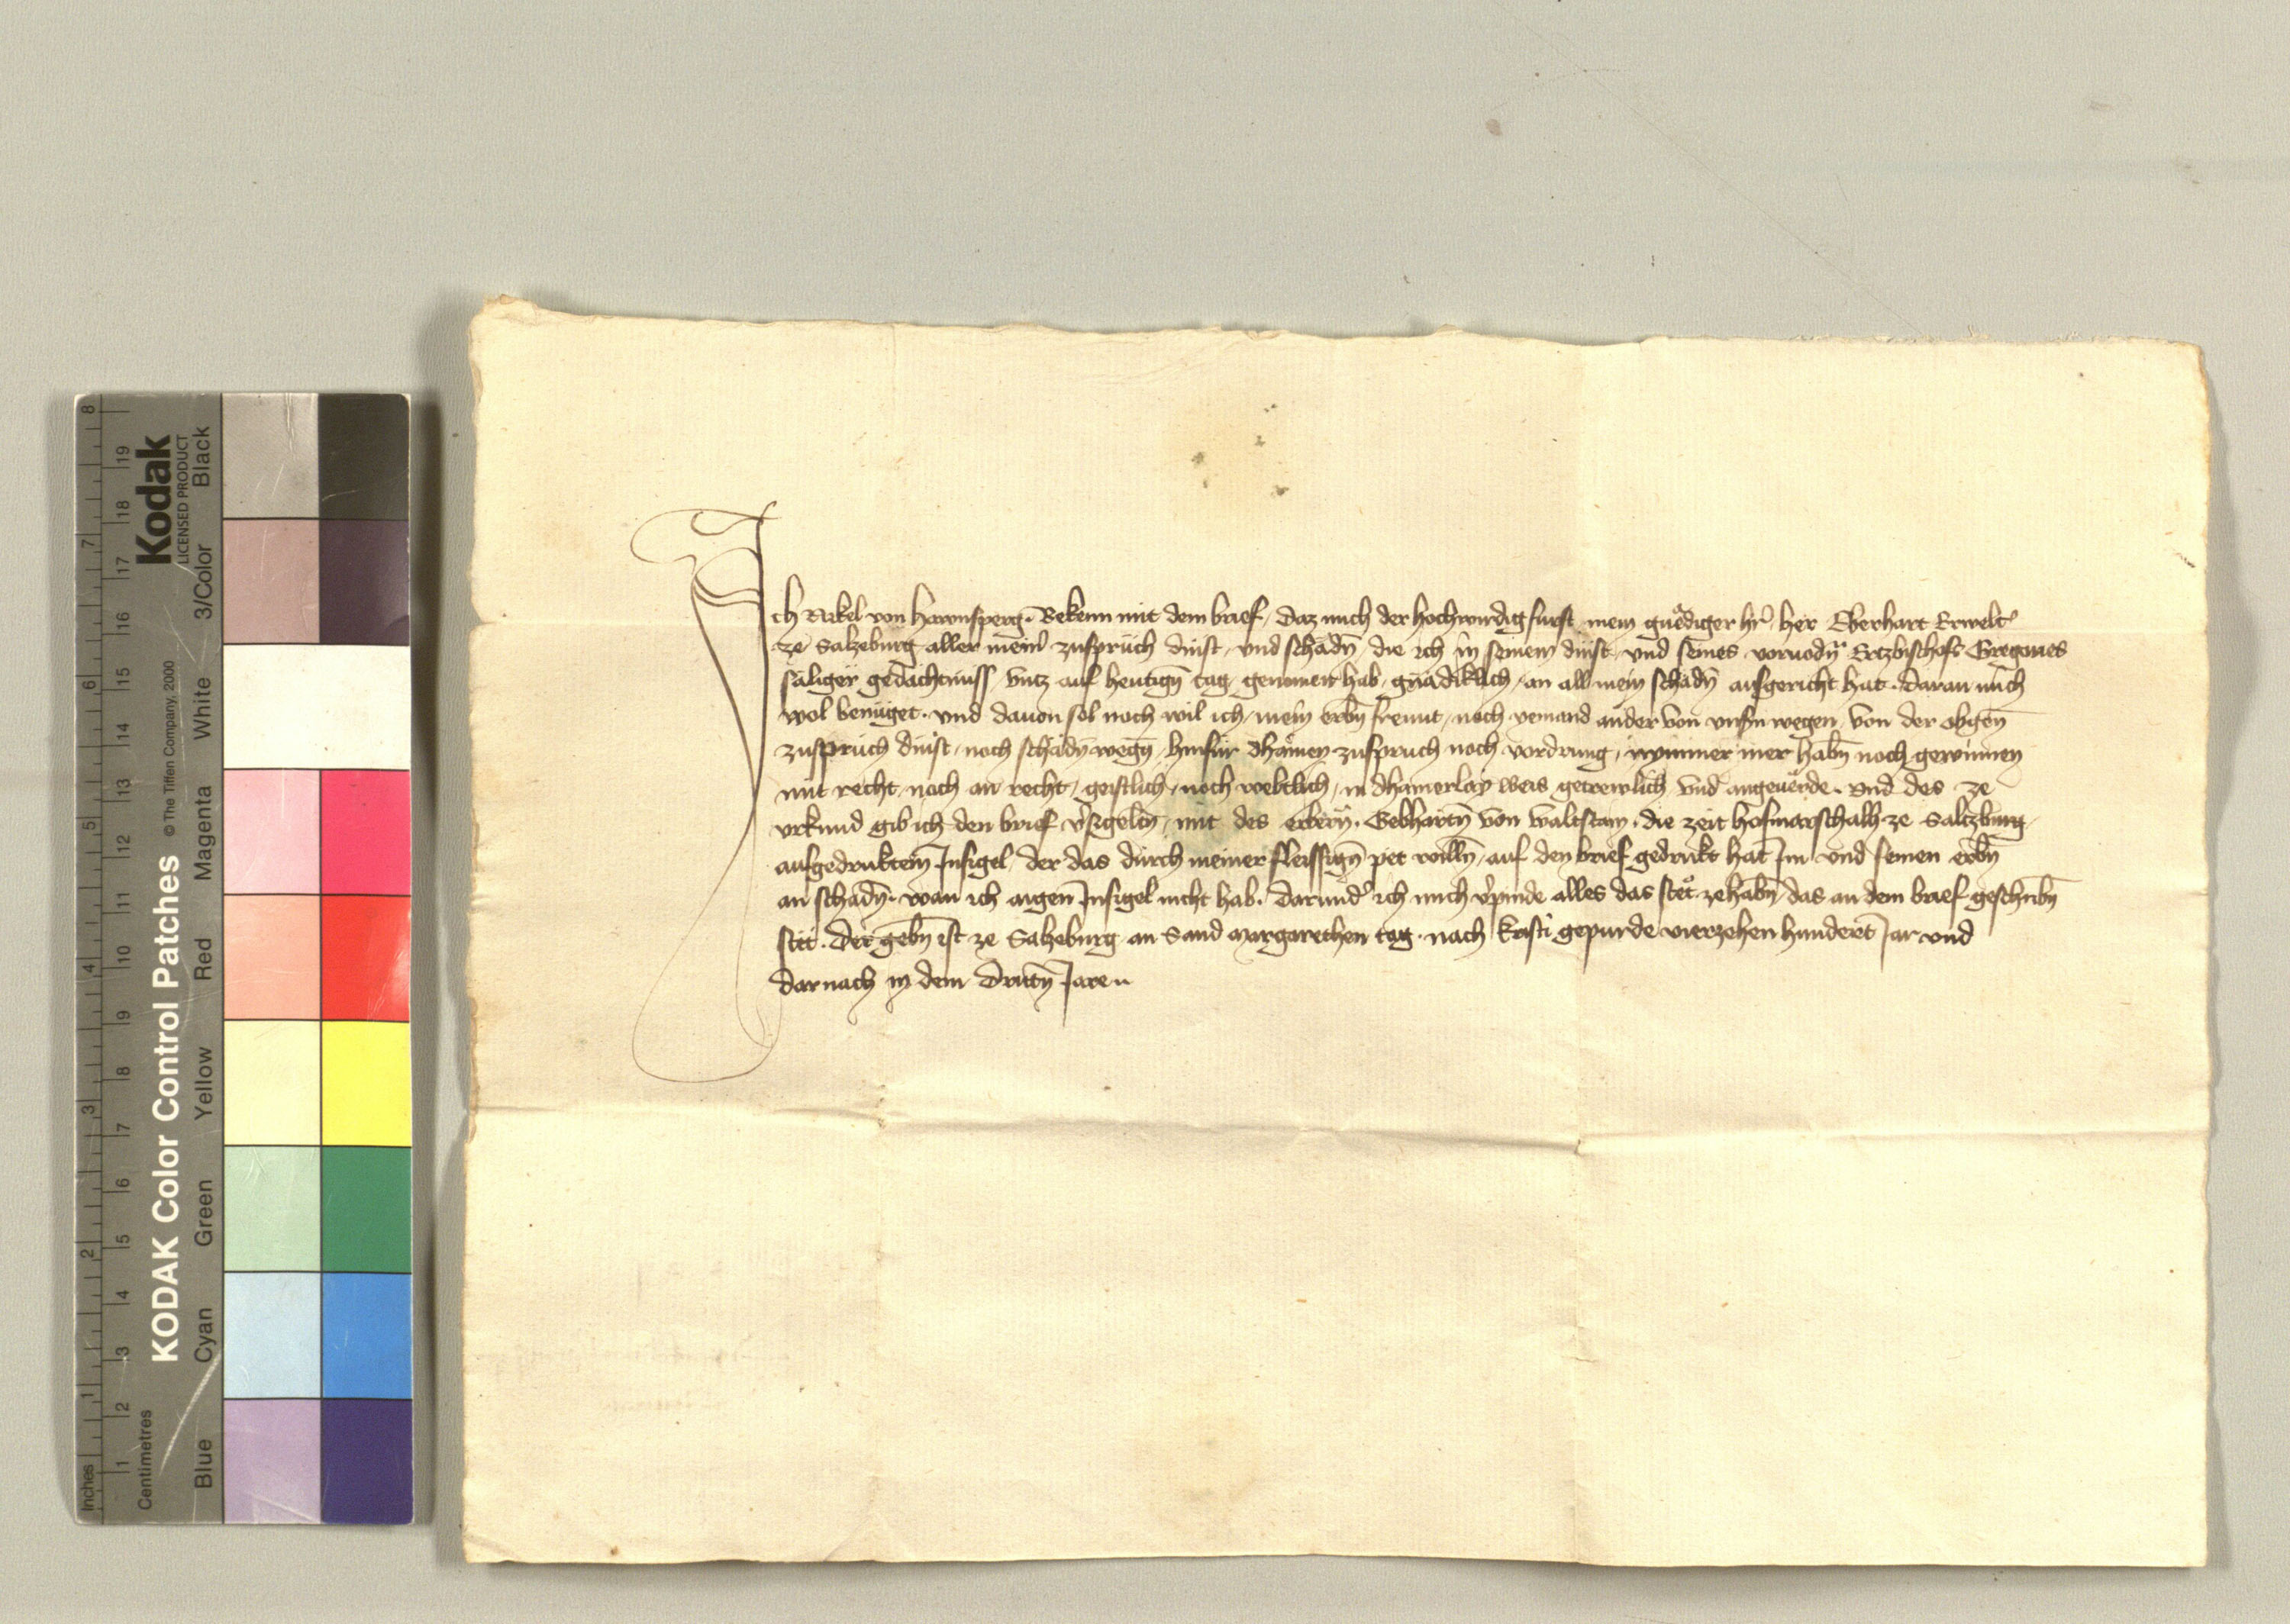 Ich Nikel von Hawnsperg. Bekenn mit dem brief / daz mich der hochwirdig furst mein gnẽdiger hr̃ / her Eberhart Erwelt᷑
ze Salzeburg aller mein᷑ zusprüch dinst / vnd schädn̄ / die ich in seinem dinst / vnd seines voruodn̄ Ertzbischofs Gregories
säliger gedächtnüss / vntz auf heutign̄ tag / genomen hab / gnädiklich / an all mein schädn̄ ausgericht hat. daran mich
wol benüget. vnd dauon sol noch wil ich / mein erbn̄ frennt / noch yemand ander von vnsn̄ wegen / von der obgen̄
zusprüch dinst / noch schädn̄ wegn̄ / hinfür dhainen zuspruch noch vordrung / nymmer mer habn̄ noch gewinnen
mit recht / noch an recht / geistlich / noch weltlich / in dhainerlay weis getrewlich vnd angeuërde. vnd des ze
vrkund gib ich den brief v᷑sigeltn̄ / mit des erbern̄. Gebhartn̄ von Waltstain. die zeit hofmarschalh ze Saltzburg
aufgedruktem Insigel / der das durch meiner fleissign̄ pet willn̄ / auf den brief gedrukt hat Im vnd seinen erbn̄
an schadn̄. wan ich aigen Insigel nicht hab. darund᷑ ich mich v᷑pinde alles das stët zehabn̄ das an dem brief geschribn̄
stët. Der gebn̄ ist ze Salzeburg an Sand Margarethen tag. nach Kristi gepurde vierzehen hunderet Jar vnd
darnach in dem drittn̄ Jare
KODAK Color Control Patches
© The Tiffen Company, 2000
Kodak
LICENSED PRODUCT
Inches 1 2 3 4 5 6 7 8
Centimetres 1 2 3 4 5 6 7 8 9 10 11 12 13 14 15 16 17 18 19
Blue Cyan Green Yellow Red Magenta White 3/Color Black